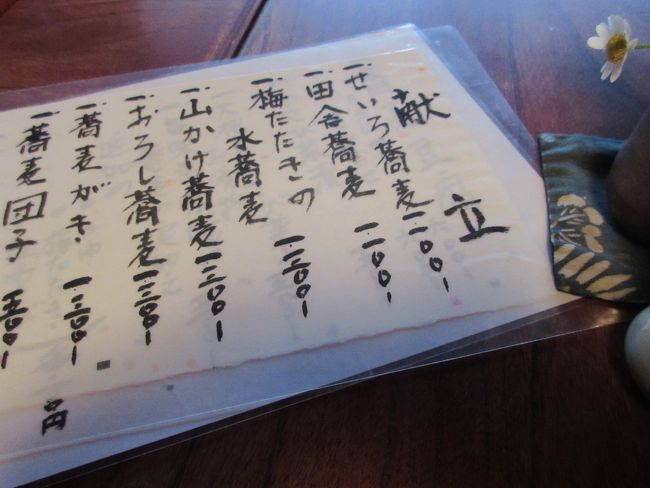 献立
一、せいろ蕎麦 一、一〇〇ー
一、田舎蕎麦 一、一〇〇ー
一、梅たたきの
水蕎麦 一、三〇〇ー
一、山かけ蕎麦 一、三〇〇ー
一、おろし蕎麦 一、二〇〇ー
一、蕎麦がき 一、二〇〇ー
一、蕎麦団子 五〇〇ー
円